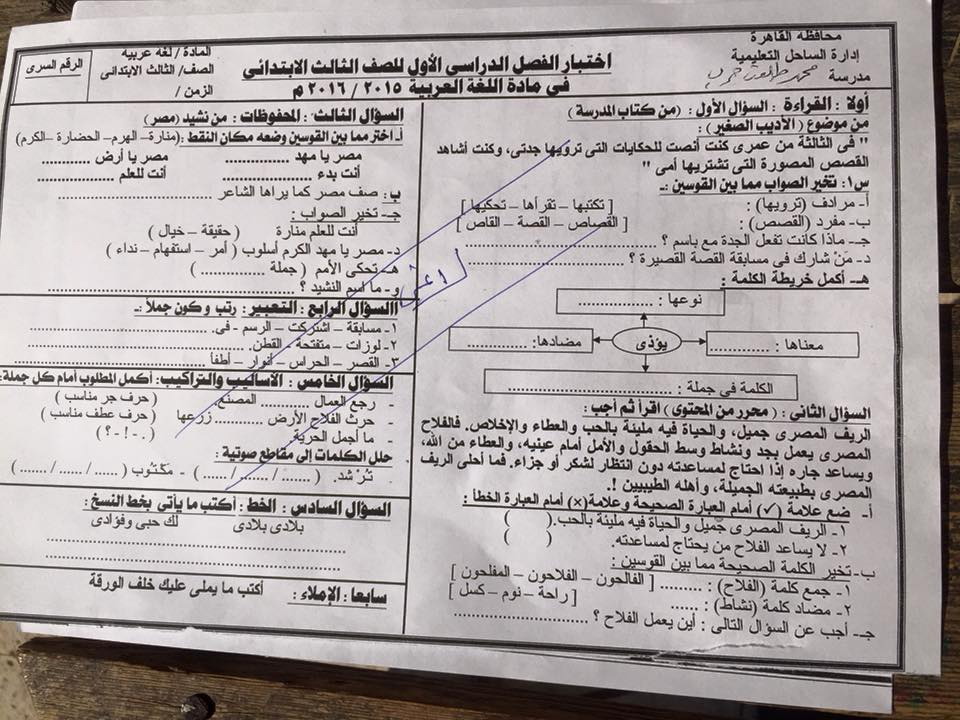 محافظه القاهرة
إدارة الساحل التعليمية
مدرسة
اختبار الفصل الدراسى الأول للصف الثالث الابتدائى
فى مادة اللغة العربية ٢٠١٥ / ٢٠١٦ م
المادة / لغه عربيه
الصف/ الثالث الابتدائى
الزمن /
الرقم السرى
أولا : القراءة : السؤال الأول : (من كتاب المدرسة)
من موضوع (الأديب الصغير) :
" فى الثالثة من عمرى كنت أنصت للحكايات التى ترويها جدتى، وكنت أشاهد
القصص المصورة التى تشتريها أمى "
س١: تخير الصواب مما بين القوسين :ـ
أ- مرادف (ترويها) : [ تكتبها – تقرأها – تحكيها ]
ب- مفرد (القصص) : [ القصاص – القصة – القاص ]
جـ- ماذا كانت تفعل الجدة مع باسم ؟ ..............................
د- مَنْ شارك فى مسابقة القصة القصيرة ؟ ..............................
هـ- أكمل خريطة الكلمة :
نوعها : ................
معناها : ..............
يؤذى
مضادها: ..............
الكلمة فى جملة : ..............................
السؤال الثانى : ( محرر من المحتوى ) اقرأ ثم أجب :
الريف المصرى جميل، والحياة فيه مليئة بالحب والعطاء والإخلاص. فالفلاح
المصرى يعمل بجد ونشاط وسط الحقول والأمل أمام عينيه، والعطاء من الله،
ويساعد جاره إذا احتاج لمساعدته دون انتظار لشكر أو جزاء. فما أحلى الريف
المصرى بطبيعته الجميلة، وأهله الطيبيين !.
أ- ضع علامة (✓) أمام العبارة الصحيحة وعلامة(×) أمام العبارة الخطأ :
١- الريف المصرى جميل والحياة فيه مليئة بالحب. ( )
٢- لا يساعد الفلاح من يحتاج لمساعدته. ( )
ب- تخير الكلمة الصحيحة مما بين القوسين :
١- جمع كلمة (الفلاح) : ........... [ الفالحون – الفلاحون – المفلحون ]
٢- مضاد كلمة (نشاط) : ...... [ راحة – نوم – كسل ]
جـ- أجب عن السؤال التالى : أين يعمل الفلاح ؟ ..............................
السؤال الثالث : المحفوظات : من نشيد (مصر)
أ- اختر مما بين القوسين وضعه مكان النقط :(منارة– الهرم– الحضارة– الكرم)
مصر يا مهد ................ مصر يا أرض .............
أنت بدء ................ أنت للعلم ................
ب: صف مصر كما يراها الشاعر ..............................
جـ- تخير الصواب :
أنت للعلم منارة ( حقيقة – خيال )
د- مصر يا مهد الكرم أسلوب ( أمر – استفهام – نداء )
هـ- تحكى الأمم ( جملة .............)
و- ما اسم النشيد ؟ ..............................
السؤال الرابع : التعبير : رتب وكون جملاً :ـ
١- مسابقة – اشتركت – الرسم - فى. ..............................
٢- لوزات – متفتحة – القطن. ..............................
٣- القصر – الحراس – أنوار – أطفأ ..............................
السؤال الخامس : الأساليب والتراكيب: أكمل المطلوب أمام كل جملة:
- رجع العمال .......... المصنع. ( حرف جر مناسب )
- حرث الفلاح الأرض .......... زرعها ( حرف عطف مناسب )
- ما أجمل الحرية. ( . -! -؟ )
حلل الكلمات إلى مقاطع صوتية :
- تُرْشد. ( ....../ ....../ ......) - مكتوب ( ....../ ....../ ......)
السؤال السادس : الخط : أكتب ما يأتى بخط النسخ :
بلادى بلادى لك حبى وفؤادى
سابعا : الإملاء : أكتب ما يملى عليك خلف الورقة